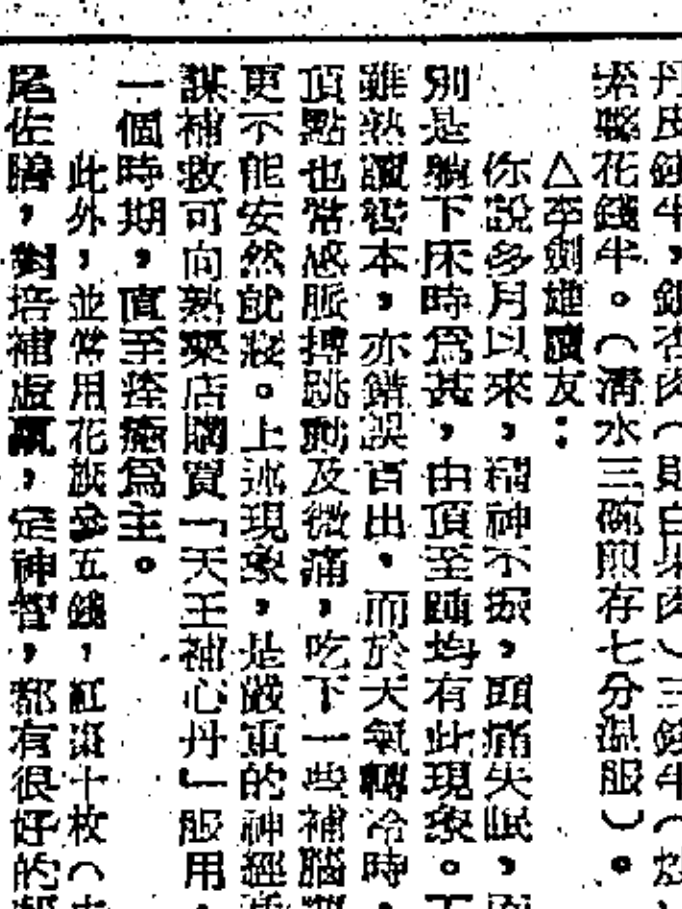 丹皮錢半，銀杏肉（即白果肉）三錢半（炒
花錢半。（清水三碗煎存七分溫服）。
△李劍雄讀友：
你說多月以來，精神不振，頭痛失眠，
別是躺下床時為甚，由頂至踵均有此現象。
雖熟讀書本，亦錯誤百出，而於天氣轉冷時，
頂點也常感脈搏跳動及微痛，吃下一些補腦
更不能安然就寢。上述現象，是嚴重的神經
謀補救可向熟藥店購買「天王補心丹」服用，
一個時期，直至痊癒為主。
此外，並常用花旗參五錢，紅棗十枚（去
尾佐膳，對培補虛羸，定神智，都有很好的